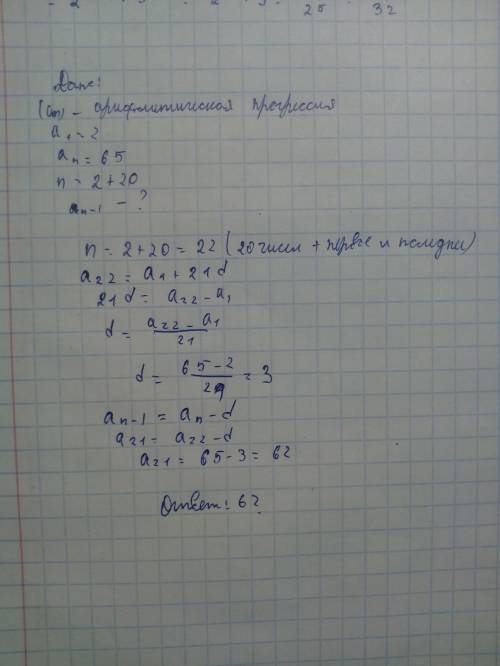 - 2 25 32
Дано:
(an) – арифметическая прогрессия
a₁ = 2
aₙ = 65
n = 2 + 20
aₙ₋₁ – ?
n = 2 + 20 = 22 (20 чисел + первое и последнее)
a₂₂ = a₁ + 21d
21d = a₂₂ - a₁
d = (a₂₂ - a₁)/21
d = (65 - 2)/21 = 3
aₙ₋₁ = aₙ - d
a₂₁ = a₂₂ - d
a₂₁ = 65 - 3 = 62
Ответ: 62